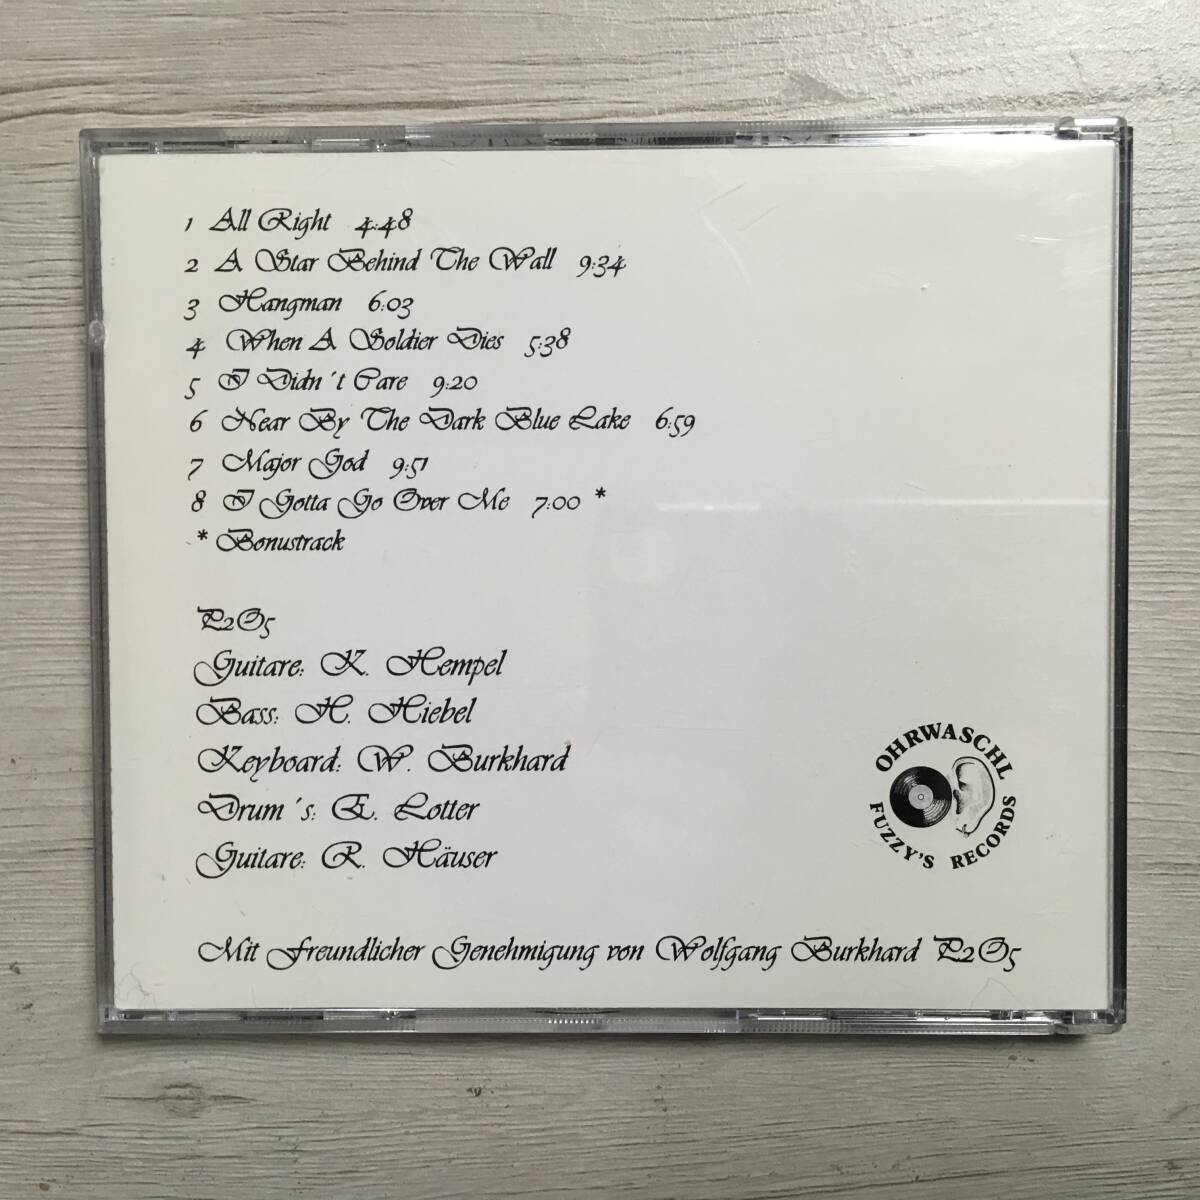 1 All Right 4:48
2 A Star Behind The Wall 9:34
3 Hangman 6:03
4 When A Soldier Dies 5:38
5 I Didn´t Care 9:20
6 Near By The Dark Blue Lake 6:59
7 Major God 9:51
8 I Gotta Go Over Me 7:00 *
* Bonustrack
P2O5
Guitare: K. Hempel
Bass: H. Hiebel
Keyboard: W. Burkhard
Drum´s: E. Lotter
Guitare: R. Häuser
OHRWASCHL
FUZZY'S RECORDS
Mit Freundlicher Genehmigung von Wolfgang Burkhard P2O5